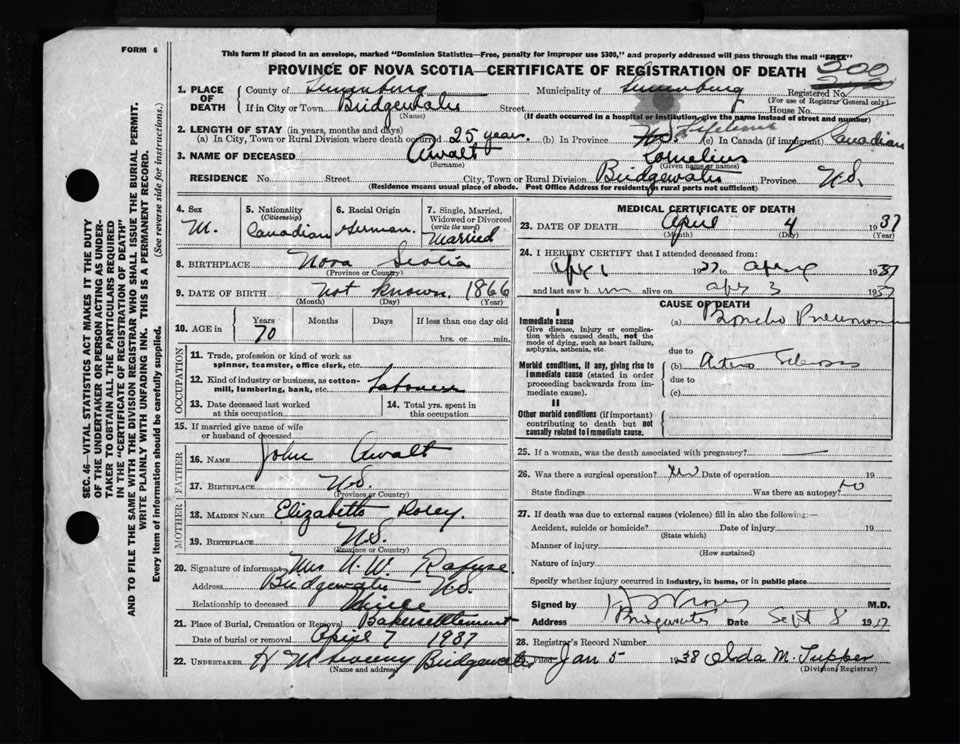 FORM 6
This form if placed in an envelope, marked "Dominion Statistics—Free, penalty for improper use $300," and properly addressed will pass through the mail "FREE"
PROVINCE OF NOVA SCOTIA—CERTIFICATE OF REGISTRATION OF DEATH 500
1. PLACE OF DEATH County of Lunenburg Municipality of Lunenburg Registered No.
(For use of Registrar General only)
If in City or Town Bridgewater Street House No.
(Name) (If death occurred in a hospital or institution, give the name instead of street and number)
2. LENGTH OF STAY (in years, months and days)
(a) In City, Town or Rural Division where death occurred 25 years. (b) In Province Lifetime (c) In Canada (if immigrant) Canadian
3. NAME OF DECEASED Awalt Cornelius
(Surname) (Given name or names)
RESIDENCE No. Street City, Town or Rural Division Bridgewater Province N.S.
(Residence means usual place of abode. Post Office Address for residents in rural parts not sufficient)
4. Sex M. 5. Nationality (Citizenship) Canadian 6. Racial Origin German 7. Single, Married, Widowed or Divorced (write the word) Married
8. BIRTHPLACE Nova Scotia
(Province or Country)
9. DATE OF BIRTH Not known. 1866
(Month) (Day) (Year)
10. AGE in Years Months Days If less than one day old
70 hrs. or min.
OCCUPATION
11. Trade, profession or kind of work as spinner, teamster, office clerk, etc.
12. Kind of industry or business, as cotton-mill, lumbering, bank, etc. Labourer
13. Date deceased last worked at this occupation
14. Total yrs. spent in this occupation
15. If married give name of wife or husband of deceased
FATHER
16. Name John Awalt
17. Birthplace N.S.
(Province or Country)
MOTHER
18. Maiden Name Elizabeth
19. Birthplace N.S.
(Province or Country)
20. Signature of informant Mrs N. W. Rafuse.
Address Bridgewater N.S.
Relationship to deceased
21. Place of Burial, Cremation or Removal Baker settlement
Date of burial or removal April 7 1937
22. UNDERTAKER Bridgewater
(Name and address)
MEDICAL CERTIFICATE OF DEATH
23. DATE OF DEATH April 4 1937
(Month) (Day) (Year)
24. I HEREBY CERTIFY that I attended deceased from:
Apr 1 1937 to April 4 1937
and last saw him alive on apr 3 1937
CAUSE OF DEATH
I
Immediate cause (a) Broncho Pneumonia
Give disease, injury or complication which caused death, not the mode of dying, such as heart failure, asphyxia, asthenia, etc.
due to
Morbid conditions, if any, giving rise to immediate cause (stated in order proceeding backwards from immediate cause). (b) Arterio Sclerosis
due to
(c)
II
Other morbid conditions (if important) contributing to death but not causally related to immediate cause.
25. If a woman, was the death associated with pregnancy?
26. Was there a surgical operation? Date of operation 19
State findings Was there an autopsy? No
27. If death was due to external causes (violence) fill in also the following:—
Accident, suicide or homicide? Date of injury 19
(State which)
Manner of injury
(How sustained)
Nature of injury
Specify whether injury occurred in industry, in home, or in public place
Signed by M.D.
Address Bridgewater Date Sept 8 1937
28. Registrar's Record Number
Filed Jan 5 1938 Alda M. Tupper
(Division Registrar)
SEC. 46—VITAL STATISTICS ACT MAKES IT THE DUTY
OF THE UNDERTAKER OR PERSON ACTING AS UNDER-
TAKER TO OBTAIN ALL THE PARTICULARS REQUIRED
IN THE "CERTIFICATE OF REGISTRATION OF DEATH"
AND TO FILE THE SAME WITH THE DIVISION REGISTRAR WHO SHALL ISSUE THE BURIAL PERMIT.
WRITE PLAINLY WITH UNFADING INK. THIS IS A PERMANENT RECORD.
Every item of information should be carefully supplied. (See reverse side for instructions.)